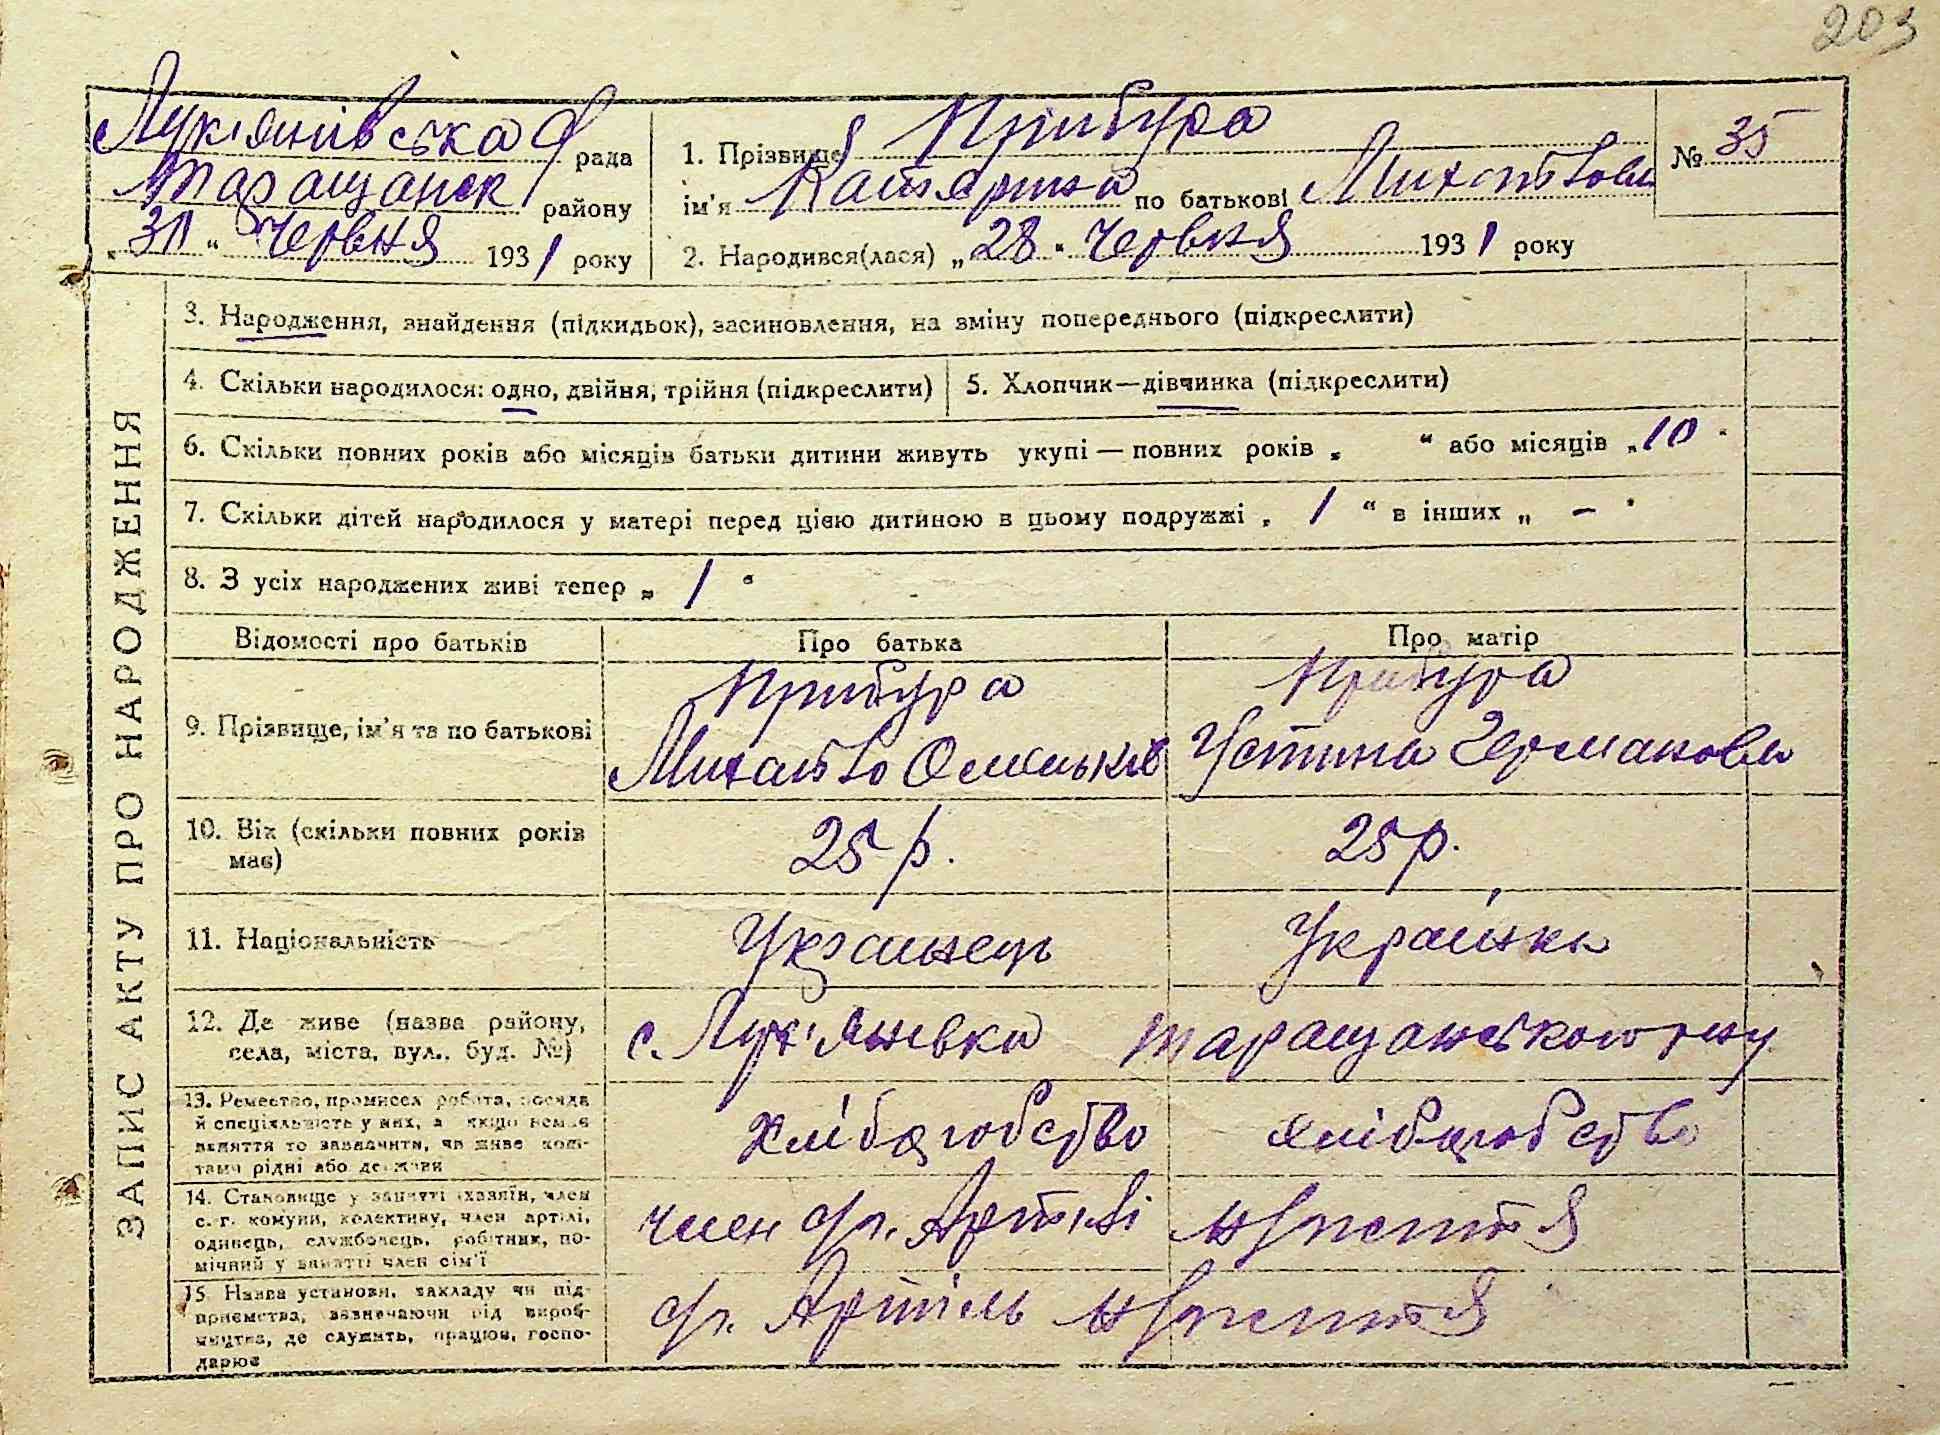 203
Лук'янівська рада
Таращанськ району
„ 30 “ Червня 1931 року
1. Прізвище Прибура
ім'я Катярина по батькові
№ 35
2. Народився(лася) „28“ Червня 1931 року
ЗАПИС АКТУ ПРО НАРОДЖЕННЯ
3. Народження, знайдення (підкидьок), засиновлення, на зміну попереднього (підкреслити)
4. Скільки народилося: одно, двійня, трійня (підкреслити)
5. Хлопчик—дівчинка (підкреслити)
6. Скільки повних років або місяців батьки дитини живуть укупі — повних років „ “ або місяців „10“
7. Скільки дітей народилося у матері перед цією дитиною в цьому подружжі „ 1 “ в інших „ — “
8. З усіх народжених живі тепер „ 1 “
Відомості про батьків
Про батька
Про матір
9. Прізвище, ім'я та по батькові
Прибура
Прибура
Устина Германовн
10. Вік (скільки повних років
має)
25 р.
25 р.
11. Національність
Українець
Українка
12. Де живе (назва району,
села, міста, вул., буд. №)
с. Лук'янівка Таращанського р-ну
13. Ремество, промисел робота, посада
й спеціяльність у них, а якщо немає
заняття то зазначити, чи живе кош-
тами рідні або держави
Хліборобство
Хліборобство
14. Становище у занятті (хазяїн, член
с.-г. комуни, колективу, член артілі,
одинець, службовець, робітник, по-
мічний у занятті член сім'ї
член Артілі
15. Назва установи, закладу чи під-
приємства, зазначаючи рід вироб-
ництва, де служить, працює, госпо-
дарює
Артіль